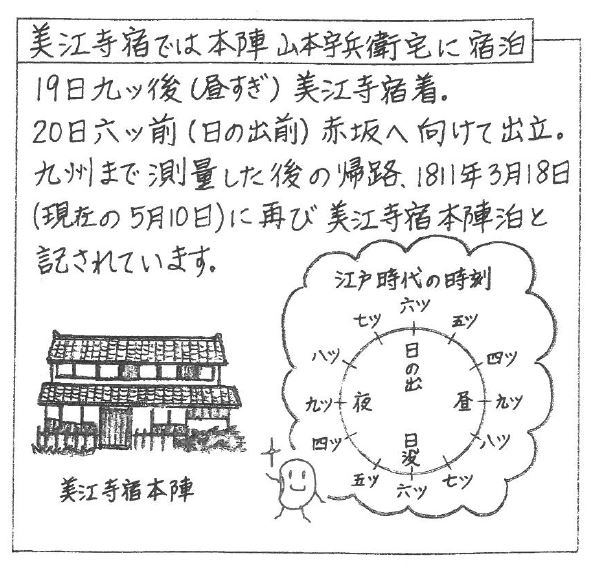 美江寺宿では本陣山本宇兵衛宅に宿泊
19日九ッ後(昼すぎ)美江寺宿着。
20日六ッ前(日の出前)赤坂へ向けて出立。
九州まで測量した後の帰路、1811年3月18日
(現在の5月10日)に再び美江寺宿本陣泊と
記されています。
江戸時代の時刻
六ッ
七ッ
五ッ
八ッ
四ッ
日の出
九ッ
夜
昼
九ッ
四ッ
八ッ
日没
五ッ
七ッ
六ッ
美江寺宿本陣